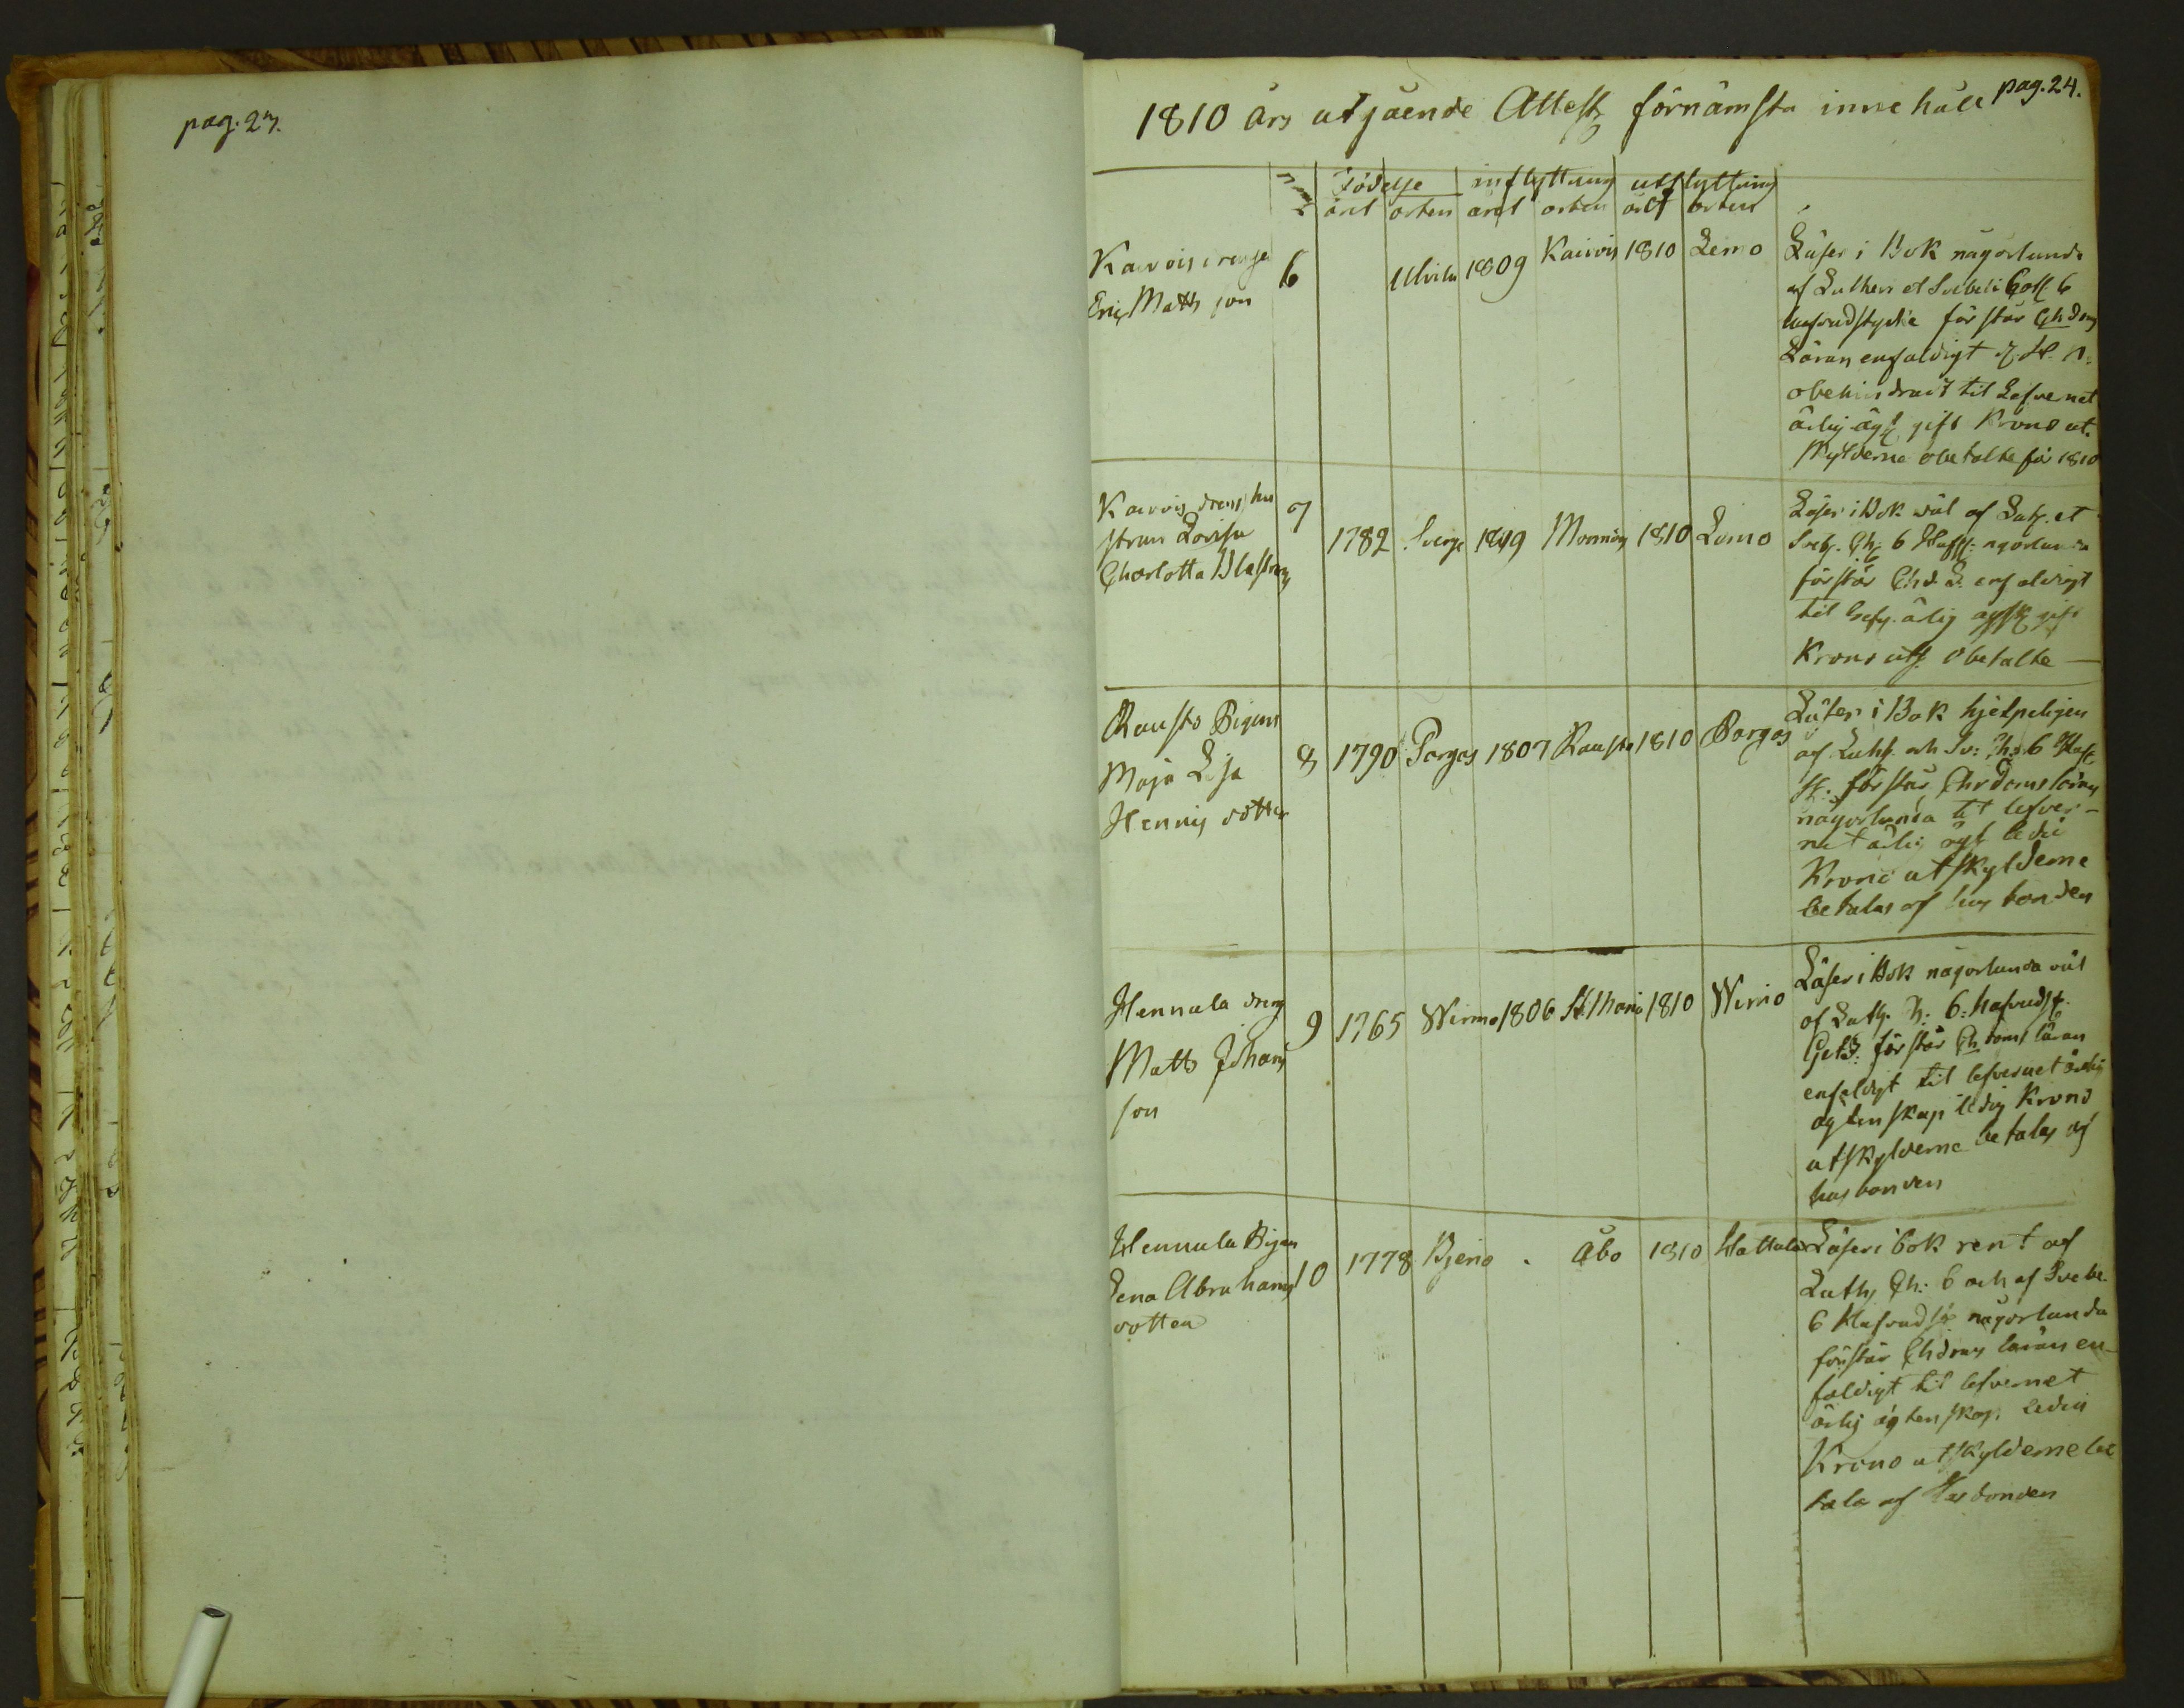 pag. 23.
pag. 24.
1810 års utgående Attest förnämsta innehåll
Födelse inflyttning utflyttning
året orten året orten året orten
Karvois drenge
Eric Matts son
6 Ulvila 1809 Kairois 1810 Lemo
Läser i Bok någorlunda
af Lutheri et Svebelii 6
hufvudstycke förstår Chdoms
Läran enfaldigt
obehindrad til Lefvernet
ärlig ägt gift Krono ut
skylderne obetalte för 1810
Karvois dreng hu
strun Lovisa
Charlotta Blaström
7 1782 Sverge 1809 1810 Lemo
Läser i Bok wäl af Luth. et
Sveb. Ch: 6 Hufv: någorlunda
förstår Chd. L: enfaldigt
til Lefv. ärlig ägtsk gift
Krono uts obetalte —
Rausto Pigan
Maja Lisa
Henrigs dotter
8 1790 Pargas 1807 Rausto 1810 Pargas
Läser i Bok hjelpeligen
af Luth. och Sv: Ch: 6 Hufv
st. förstår Chrdoms läran
någorlunda til lefver-
net ärlig ägt ledi
Krono utskylderne
betalas af husbonden
Hennala dreng
Matts Johans
son
9 1765 Wirmo 1806 St Marie 1810 Wirmo
Läser i Bok någorlunda wäl
af Luth. Ch: 6: hufvudst.
förstår Chdoms läran
enfaldigt til lefvernet ärlig
ägtenskap ledig Krono
utskylderne betalas af
husbonden
Hennala Pigan
Lena Abrahams
dotter
10 1778 Bjerno . Åbo 1810 Hattula
Läser i bok rent af
Luth. Ch: 6 och af Svebe.
6 Hufvudst någorlunda
förstår Chdoms läran en-
faldigt til lefvernet
ärlig ägtenskap ledig
Krono utskylderne be
tala af Husbonden